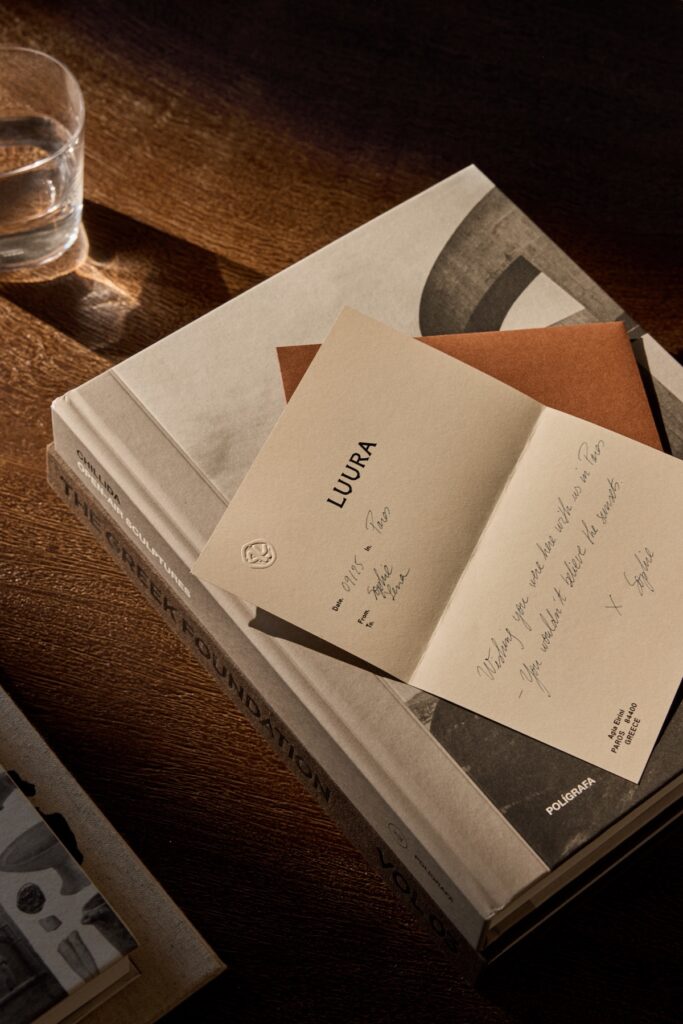 LUURA
Date. 09/25 in. Paros
From Sophie
To Lena
Wishing you were here with us in Paros
- You wouldn't believe the sunsets
x Sophie
Agia Eirini
PAROS 84400
GREECE
CHILLIDA
OPEN-AIR SCULPTURES
POLÍGRAFA
THE GREEK FOUNDATION
VOL 03
POLÍGRAFA